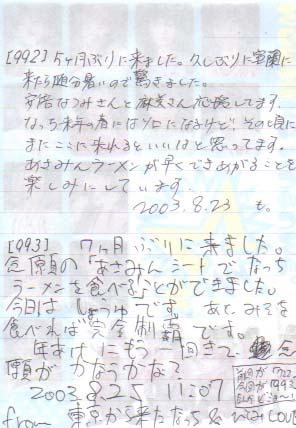 [992] 5ヶ月ぶりに来ました。久しぶりに室蘭に
来たら随分暑いので驚きました。
安倍なつみさんと麻美さん応援してます。
なっち来年の春にはソロになるけど、その頃に
またここに来れるといいなと思ってます。
あさみんラーメンが早くできあがることを
楽しみにしています。
2003.8.23 も。
[993] 7ヶ月ぶりに来ました。
念願の「あさみんシートでなっち
ラーメンを食べる」ことができました。
今日はしょうゆです。あと、みそを
食べれば完全制覇です。
年あけにもう一回きて 念
願がかなうかな?
2003.8.25 11:07
from 東京から来たなっち& LOVE